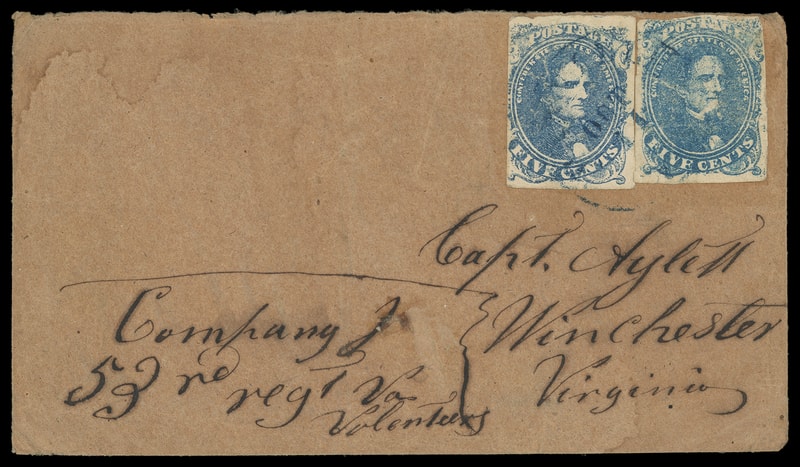 POSTAGE
CONFEDERATE STATES OF AMERICA
FIVE CENTS
POSTAGE
CONFEDERATE STATES OF AMERICA
FIVE CENTS
Capt. Aylett
Winchester
Virginia
Company J.
53rd regt Va
Volenteers